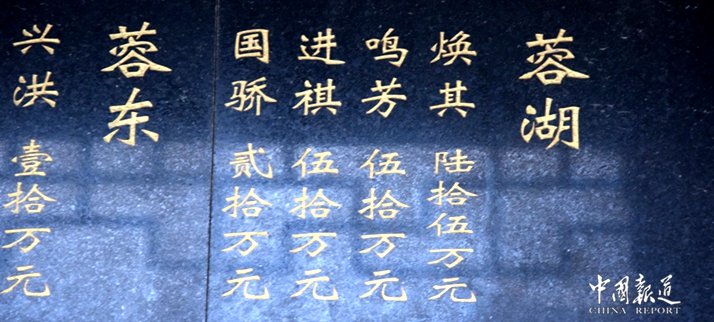 蓉湖
焕其 陆拾伍万元
鸣芳 伍拾万元
进祺 伍拾万元
国骄 贰拾万元
蓉东
兴洪 壹拾万元
中国報道
CHINA REPORT